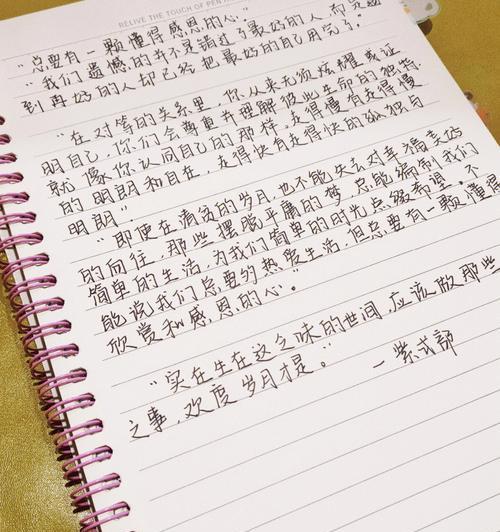 RELIVE THE TOUCH OF PEN
"总要有一颗懂得感恩的心。"
"我们遗憾的并不是错过了最好的人,而是遇
到再好的人却已经把最好的自己用完了。"
"在对等的关系里,你从来无须炫耀或证
明自己,你们会尊重并理解彼此生命的独特
就像你认同自己的那样。走得慢有走得慢
的明朗和自在,走得快有走得快的孤独与
明朗"。
"即使在清贫的岁月,也不能失去对幸福美好
的向往,那些摆脱平庸的梦,总能编制我们
简单的生活,为我们简单的时光点缀希望。不
能说我们总要多热爱生活,但总要有一颗懂得
欣赏和感恩的心。"
"实在生在这乏味的世间,应该做那些
之事,欢度岁月才是。" —紫式部